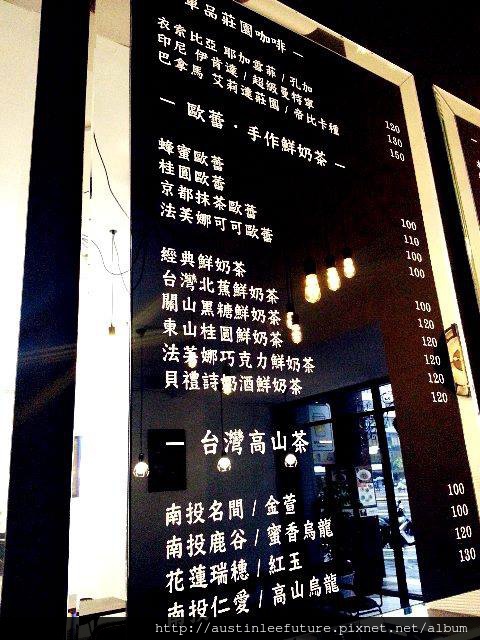 單品莊園咖啡 —
衣索比亞 耶加雪菲 / 孔加 120
印尼 伊肯達 / 超級曼特寧 130
巴拿馬 艾莉達莊園 / 帝比卡種 150
— 歐蕾 · 手作鮮奶茶 —
蜂蜜歐蕾 100
桂圓歐蕾 110
京都抹茶歐蕾 100
法芙娜可可歐蕾 100
經典鮮奶茶 100
台灣北蕉鮮奶茶 120
關山黑糖鮮奶茶 120
東山桂圓鮮奶茶 120
法芙娜巧克力鮮奶茶 120
貝禮詩奶酒鮮奶茶 120
— 台灣高山茶
南投名間 / 金萱 100
南投鹿谷 / 蜜香烏龍 100
花蓮瑞穗 / 紅玉 120
南投仁愛 / 高山烏龍 130
http://austinleefuture.pixnet.net/album